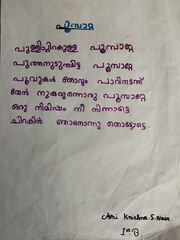 പൂമ്പാറ്റ
പുള്ളിച്ചിറകുള്ള പൂമ്പാറ്റേ
പുത്തനുടുപ്പിട്ട പൂമ്പാറ്റേ
പൂവുകൾ തോറും പാറിനടന്ന്
തേൻ നുകരുന്നൊരു പൂമ്പാറ്റേ
ഒരു നിമിഷം നീ നിന്നാട്ടെ
ചിറകിൻ ഞാനൊന്നു തൊട്ടോട്ടെ..
Ani Krishna S. Nair
Ist B